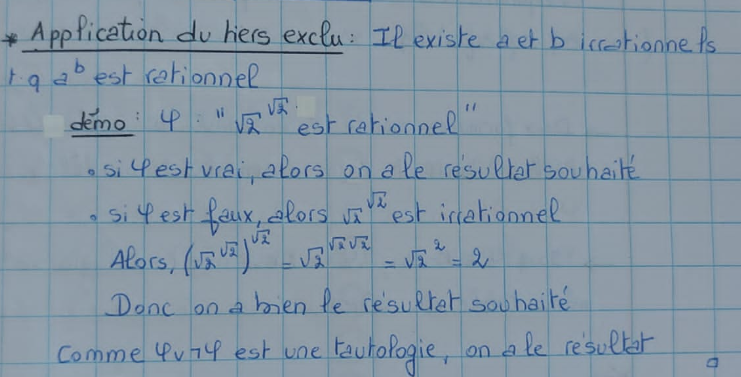 * Application du tiers exclu : Il existe a et b irrationnels
tq a^b est rationnel
démo : φ : "√2^√2 est rationnel"
• si φ est vrai, alors on a le résultat souhaité
• si φ est faux, alors √2^√2 est irrationnel
Alors, (√2^√2)^√2 = √2^√2√2 = √2^2 = 2
Donc on a bien le résultat souhaité
Comme φ∨¬φ est une tautologie, on a le résultat